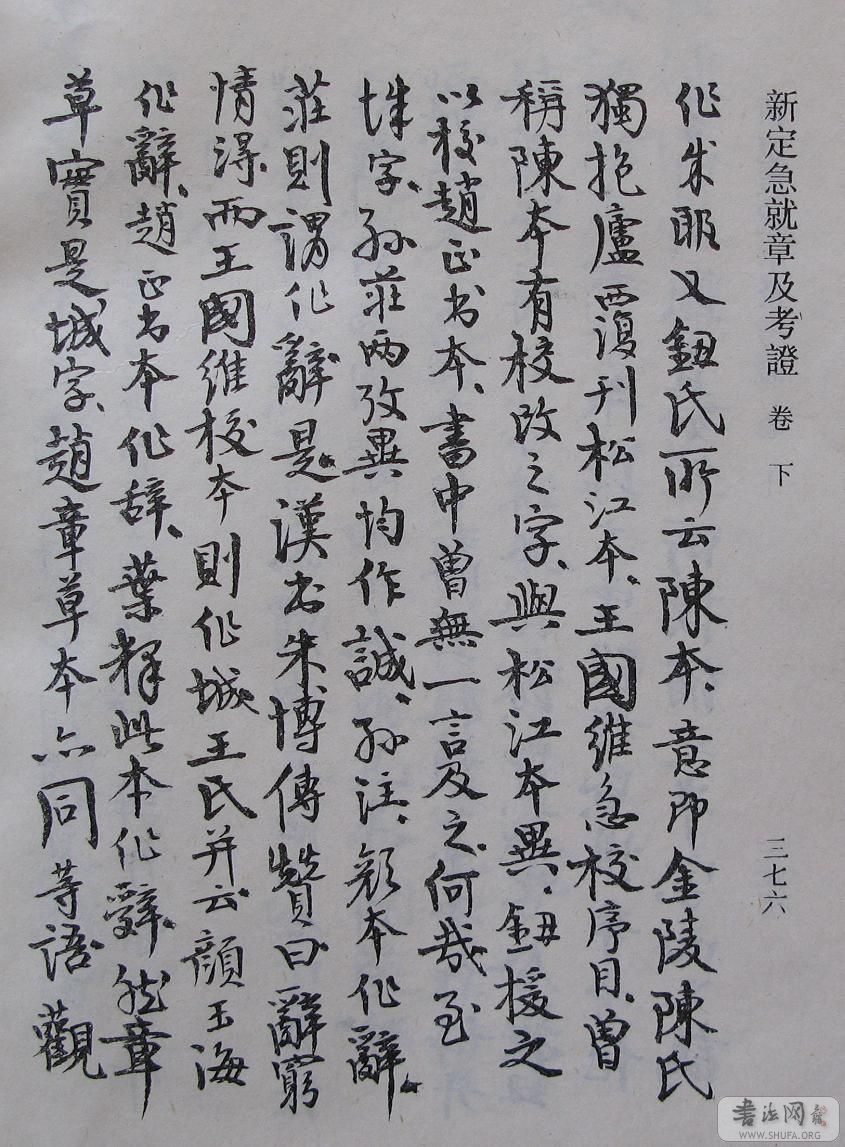 新定急就章及考證 卷下
三七六
作朱眼又鈕氏所云陳本、意即金陵陳氏
獨抱廬西復刊松江本、王國維急校序目、曾
稱陳本有校改之字、與松江本異、鈕援文
以校趙正书本、書中曾無一言及之、何哉至
悚字、孙莊兩攷異均作誠、孙注、颜本作辭、
莊則謂作辭是、漢书朱博傳贊曰辭窮
情得、而王國維校本則作城王氏并云顏王海
作辭、趙正书本作辞、葉释此本作辭、然章
草實是城字、趙章草本亦同等語觀
書法网
WWW.SHUFA.ORG